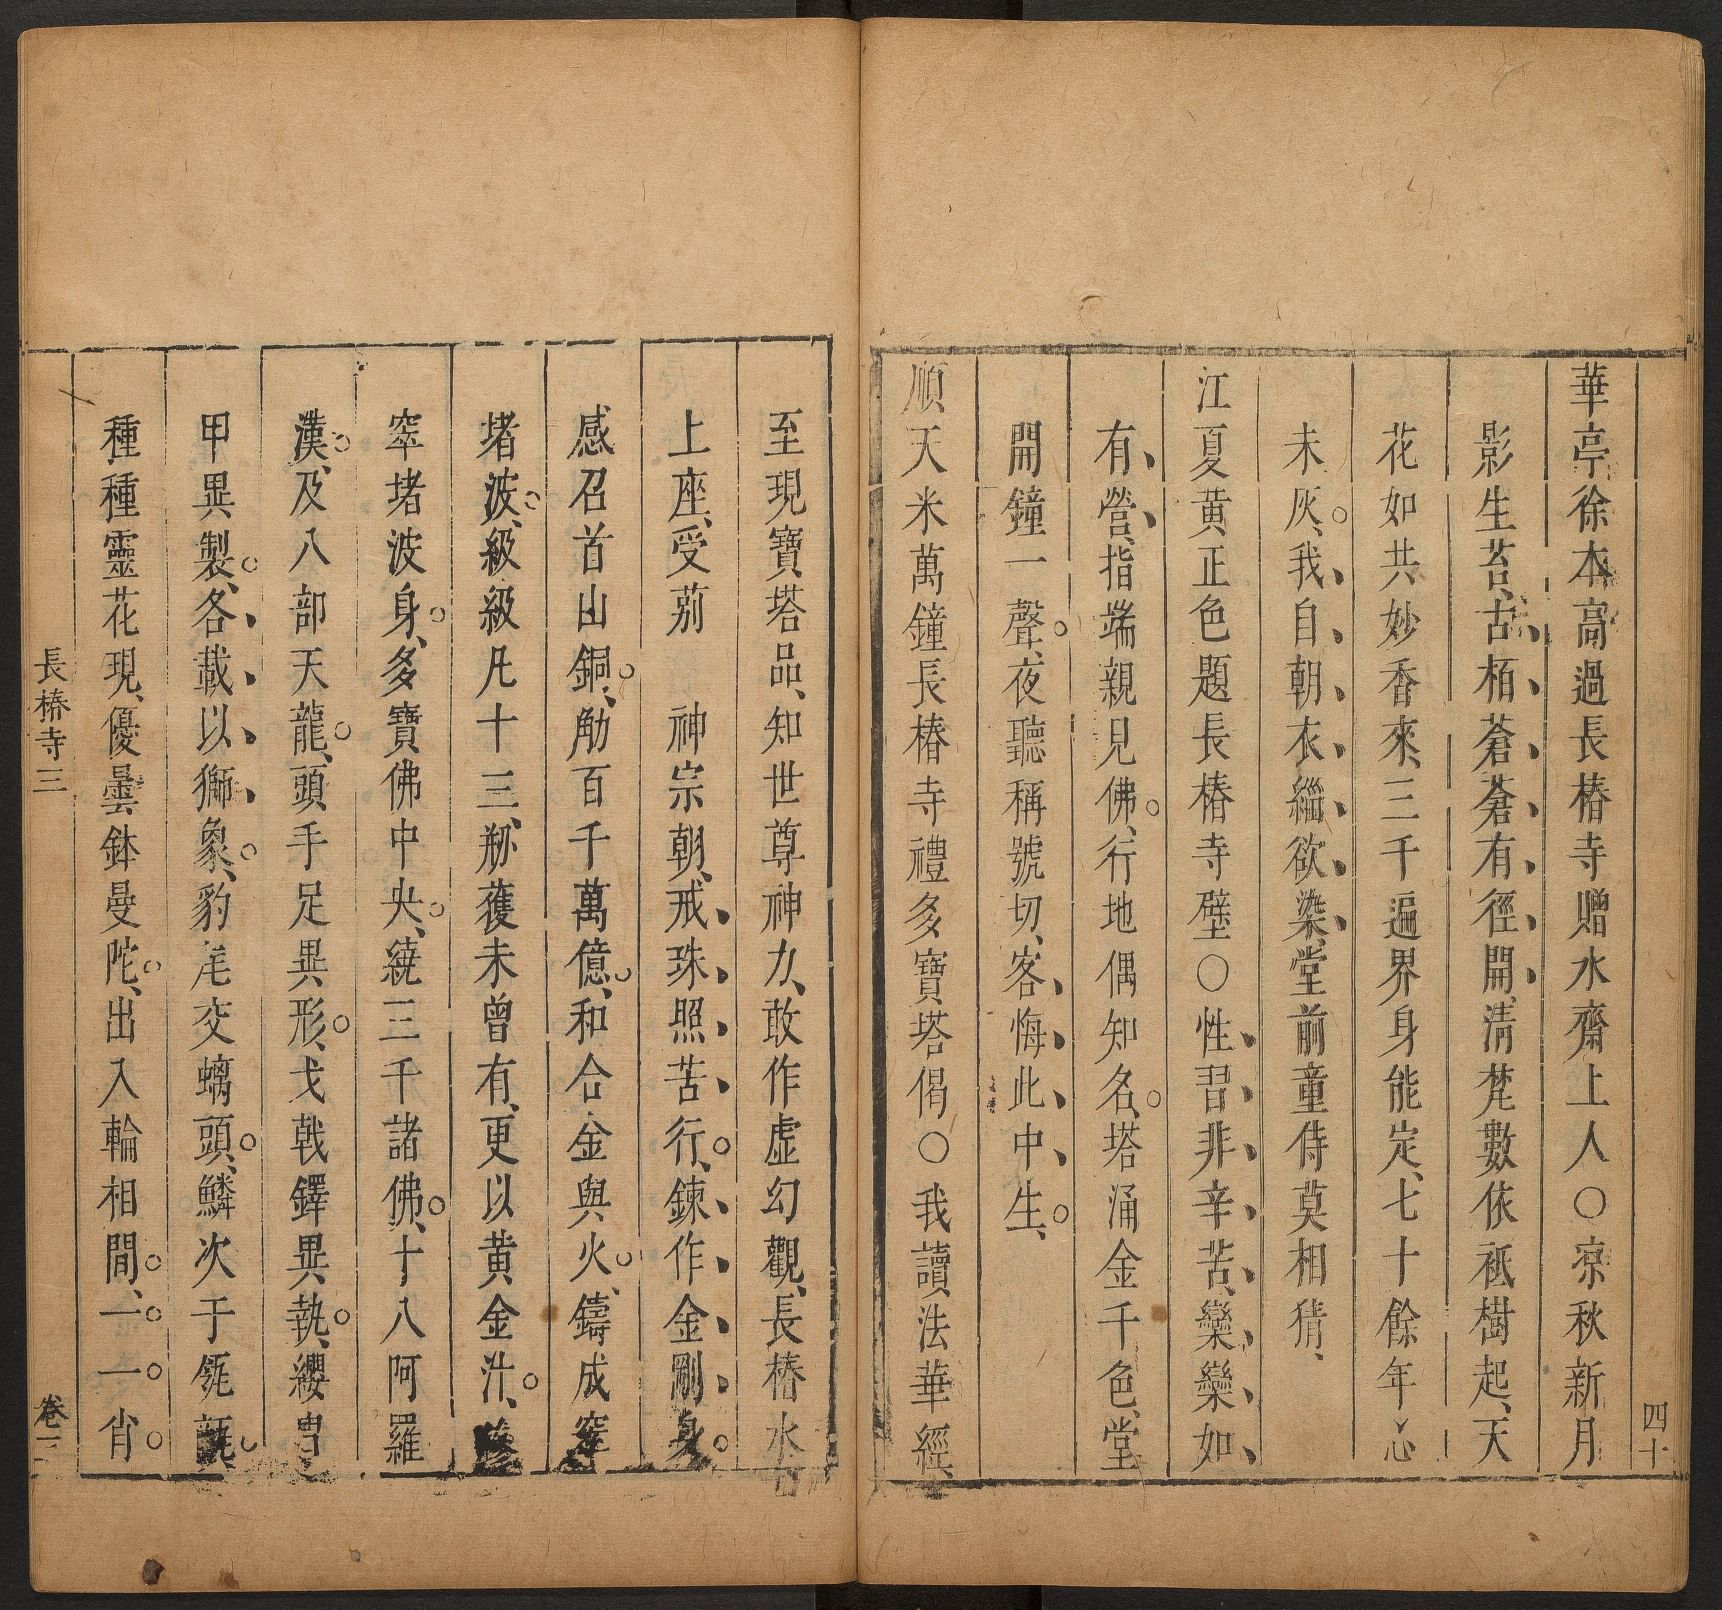 四十
華亭徐本高過長椿寺贈水齋上人○凉秋新月
影生苔、古栢蒼蒼有徑開、清梵數依祗樹起、天
花如共妙香來、三千遍界身能定、七十餘年心
未灰、我自朝衣緇欲染、堂前童侍莫相猜、
江夏黃正色題長椿寺壁○性習非辛苦、欒欒如
有營、指端親見佛、行地偶知名、塔涌金千色、堂
開鐘一聲、夜聽稱號切、客悔此中生、
順天米萬鐘長椿寺禮多寶塔偈○我讀法華經、
至現寶塔品、知世尊神力、敢作虛幻觀、長椿水
上座、受莂　神宗朝、戒珠照苦行、鍊作金剛身、
感召首山銅、觔百千萬億、和合金與火、鑄成窣
堵波、級級凡十三、刱獲未曾有、更以黃金汁、
窣堵波身、多寶佛中央、繞三千諸佛、十八阿羅
漢、及八部天龍、頭手足異形、戈戟鐸異執、纓
甲異製、各載以獅象、豹尾交螭頭、鱗次于
種種靈花現、優曇鉢曼陀、出入輪相間、一一肖
長椿寺三
卷三